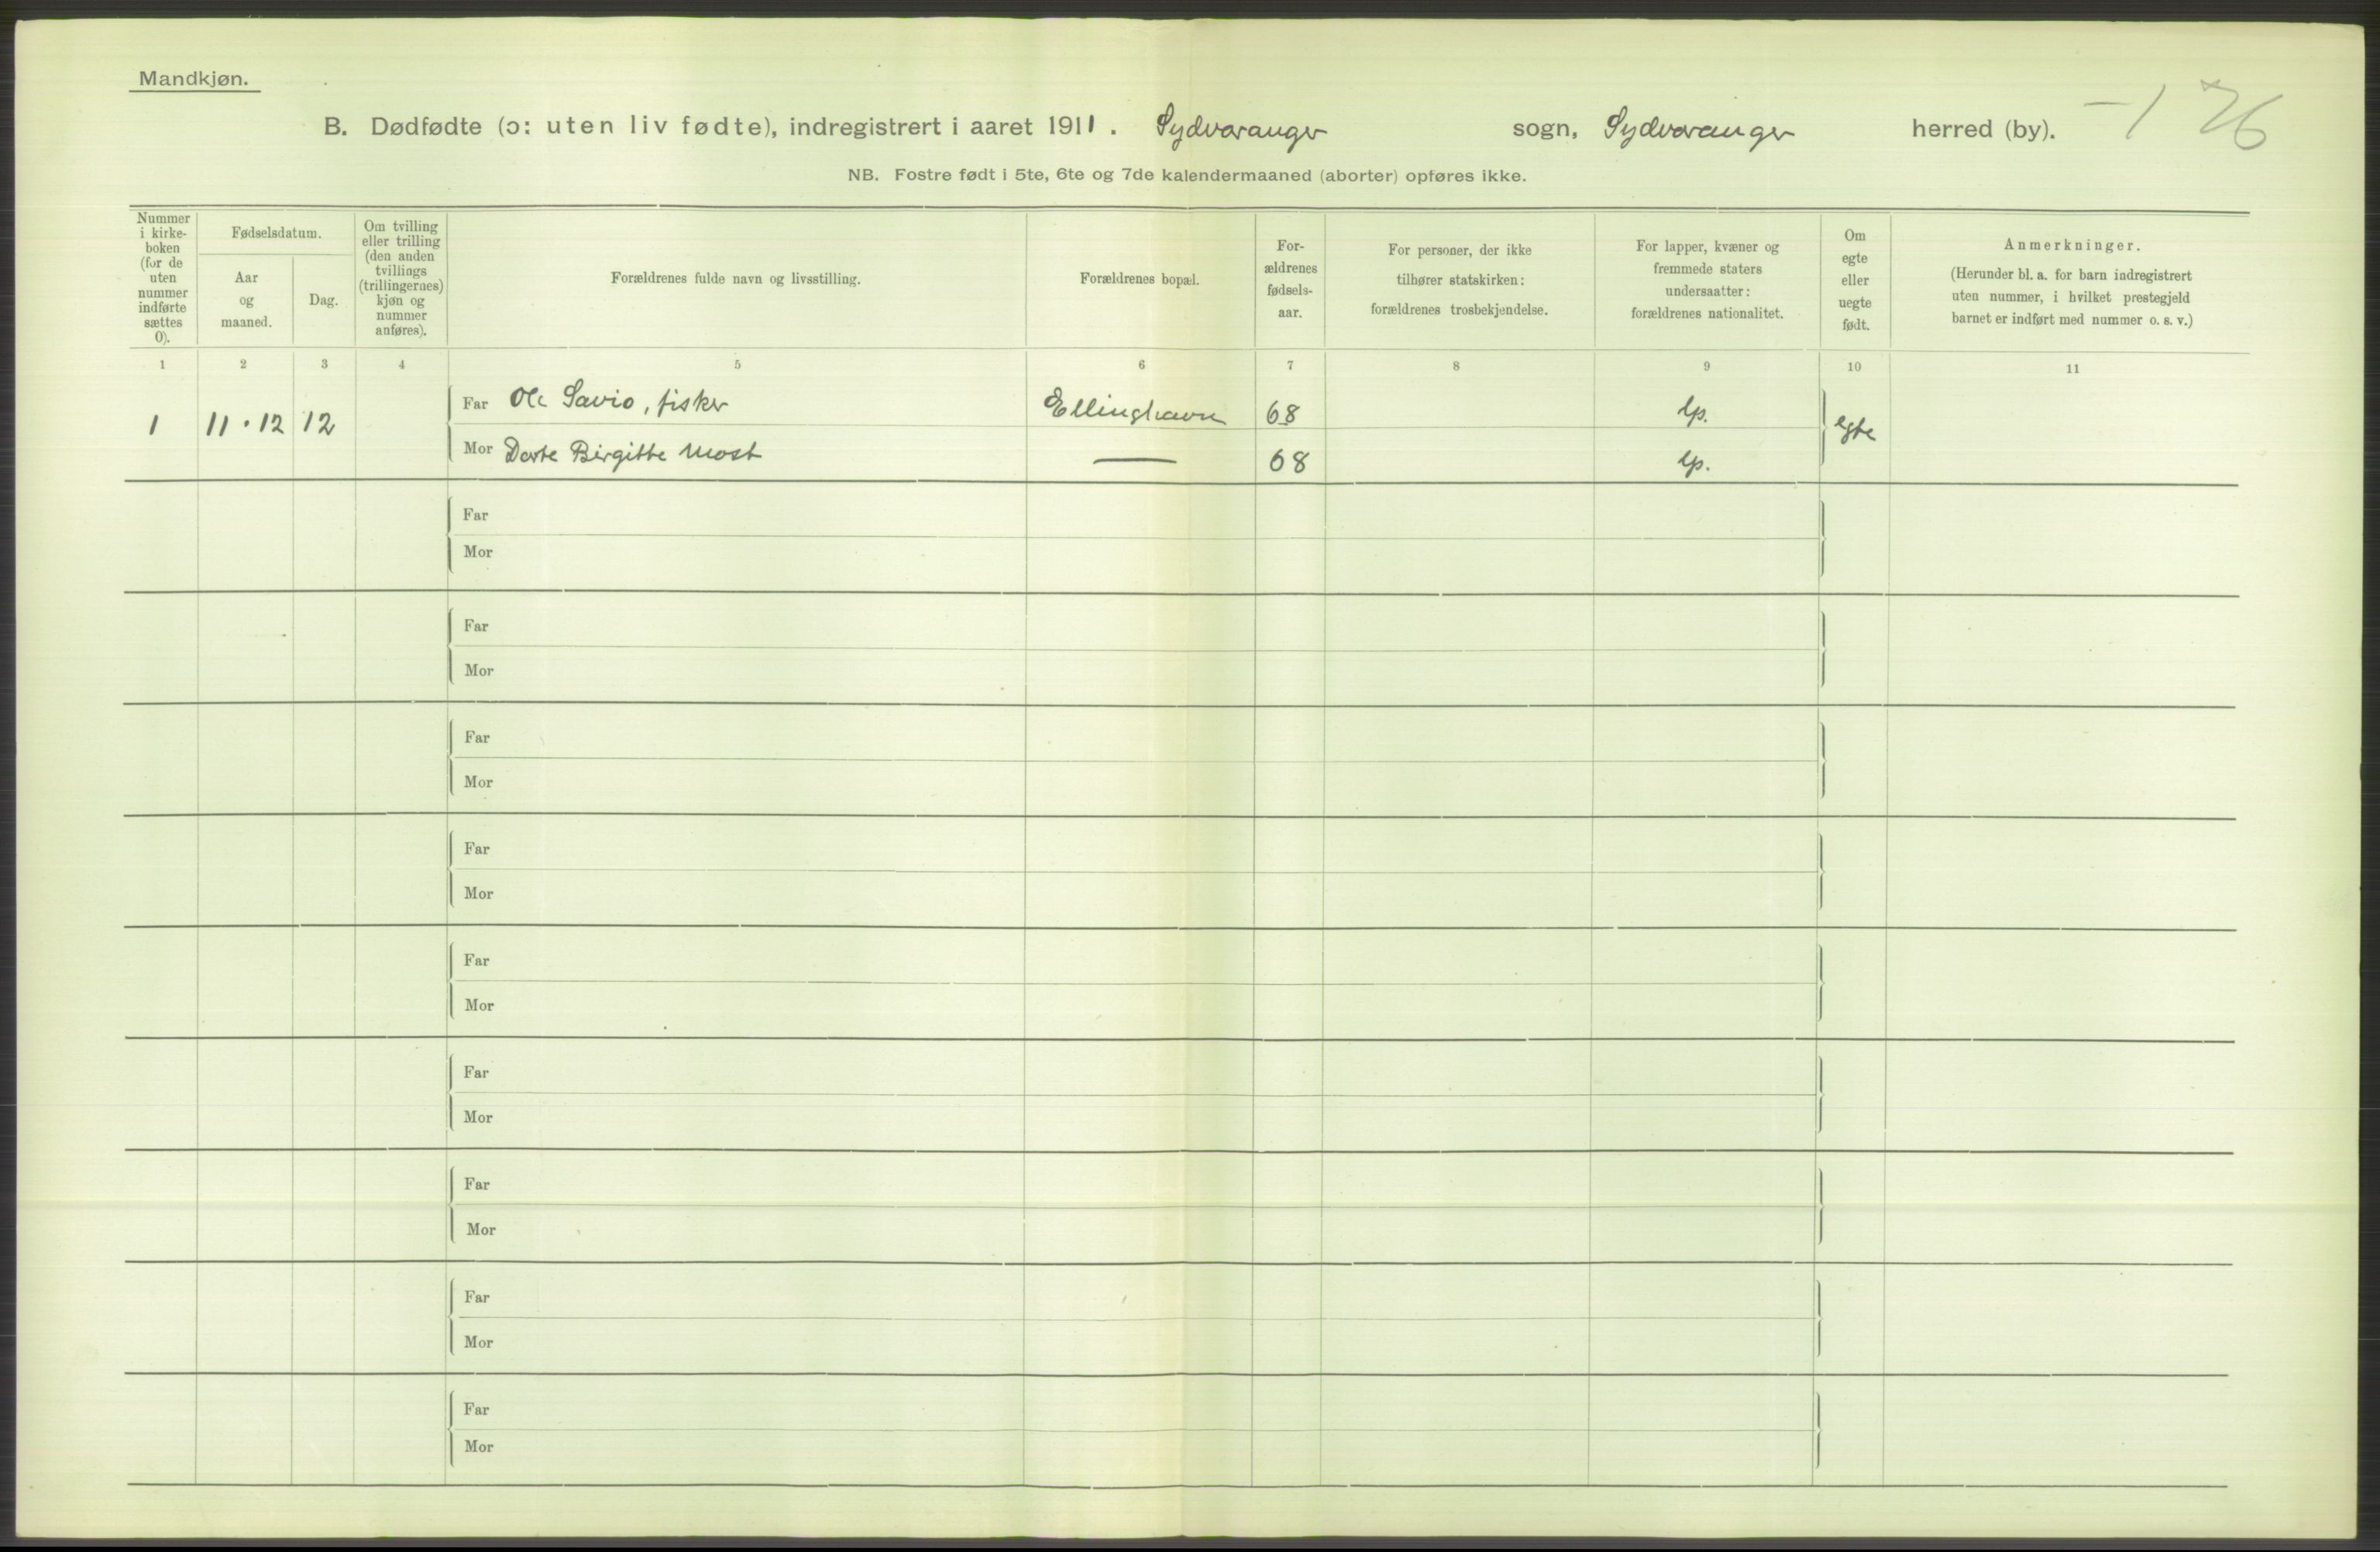 Mandkjøn.
B. Dødfødte (ɔ: uten liv fødte), indregistrert i aaret 1911. Sydvaranger sogn, Sydvaranger herred (by). -1 76
NB. Fostre født i 5te, 6te og 7de kalendermaaned (aborter) opføres ikke.
Nummer
i kirke-
boken
(for de
uten
nummer
indførte
sættes
0).
Fødselsdatum.
Aar
og
maaned.
Dag.
Om tvilling
eller trilling
(den anden
tvillings
(trillingernes)
kjøn og
nummer
anføres).
Forældrenes fulde navn og livsstilling.
Forældrenes bopæl.
For-
ældrenes
fødsels-
aar.
For personer, der ikke
tilhører statskirken:
forældrenes trosbekjendelse.
For lapper, kvæner og
fremmede staters
undersaatter:
forældrenes nationalitet.
Om
egte
eller
uegte
født.
Anmerkninger.
(Herunder bl. a. for barn indregistrert
uten nummer, i hvilket prestegjeld
barnet er indført med nummer o. s. v.)
1 2 3 4 5 6 7 8 9 10 11
1 11 · 12 12 Far Ole Savio, fisker Ellinghavn 68 lp. egte
Mor Dorte Birgitte Most — 68 lp.
Far
Mor
Far
Mor
Far
Mor
Far
Mor
Far
Mor
Far
Mor
Far
Mor
Far
Mor
Far
Mor